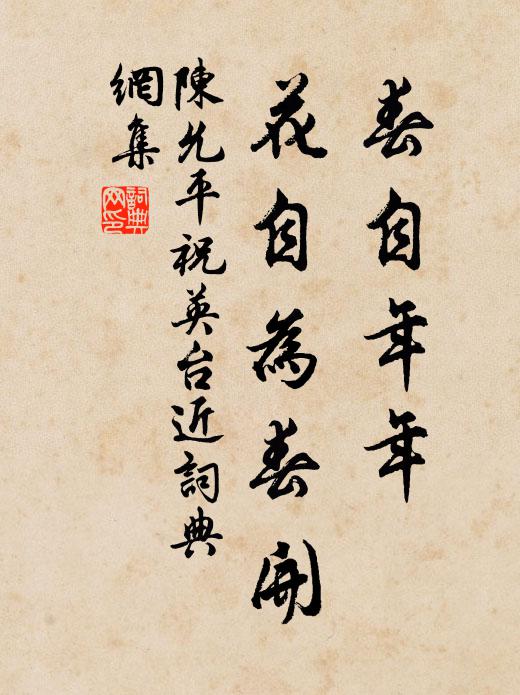 春自年年
花自為春開
陳允平祝英台近詞典
網集
詞典
网印